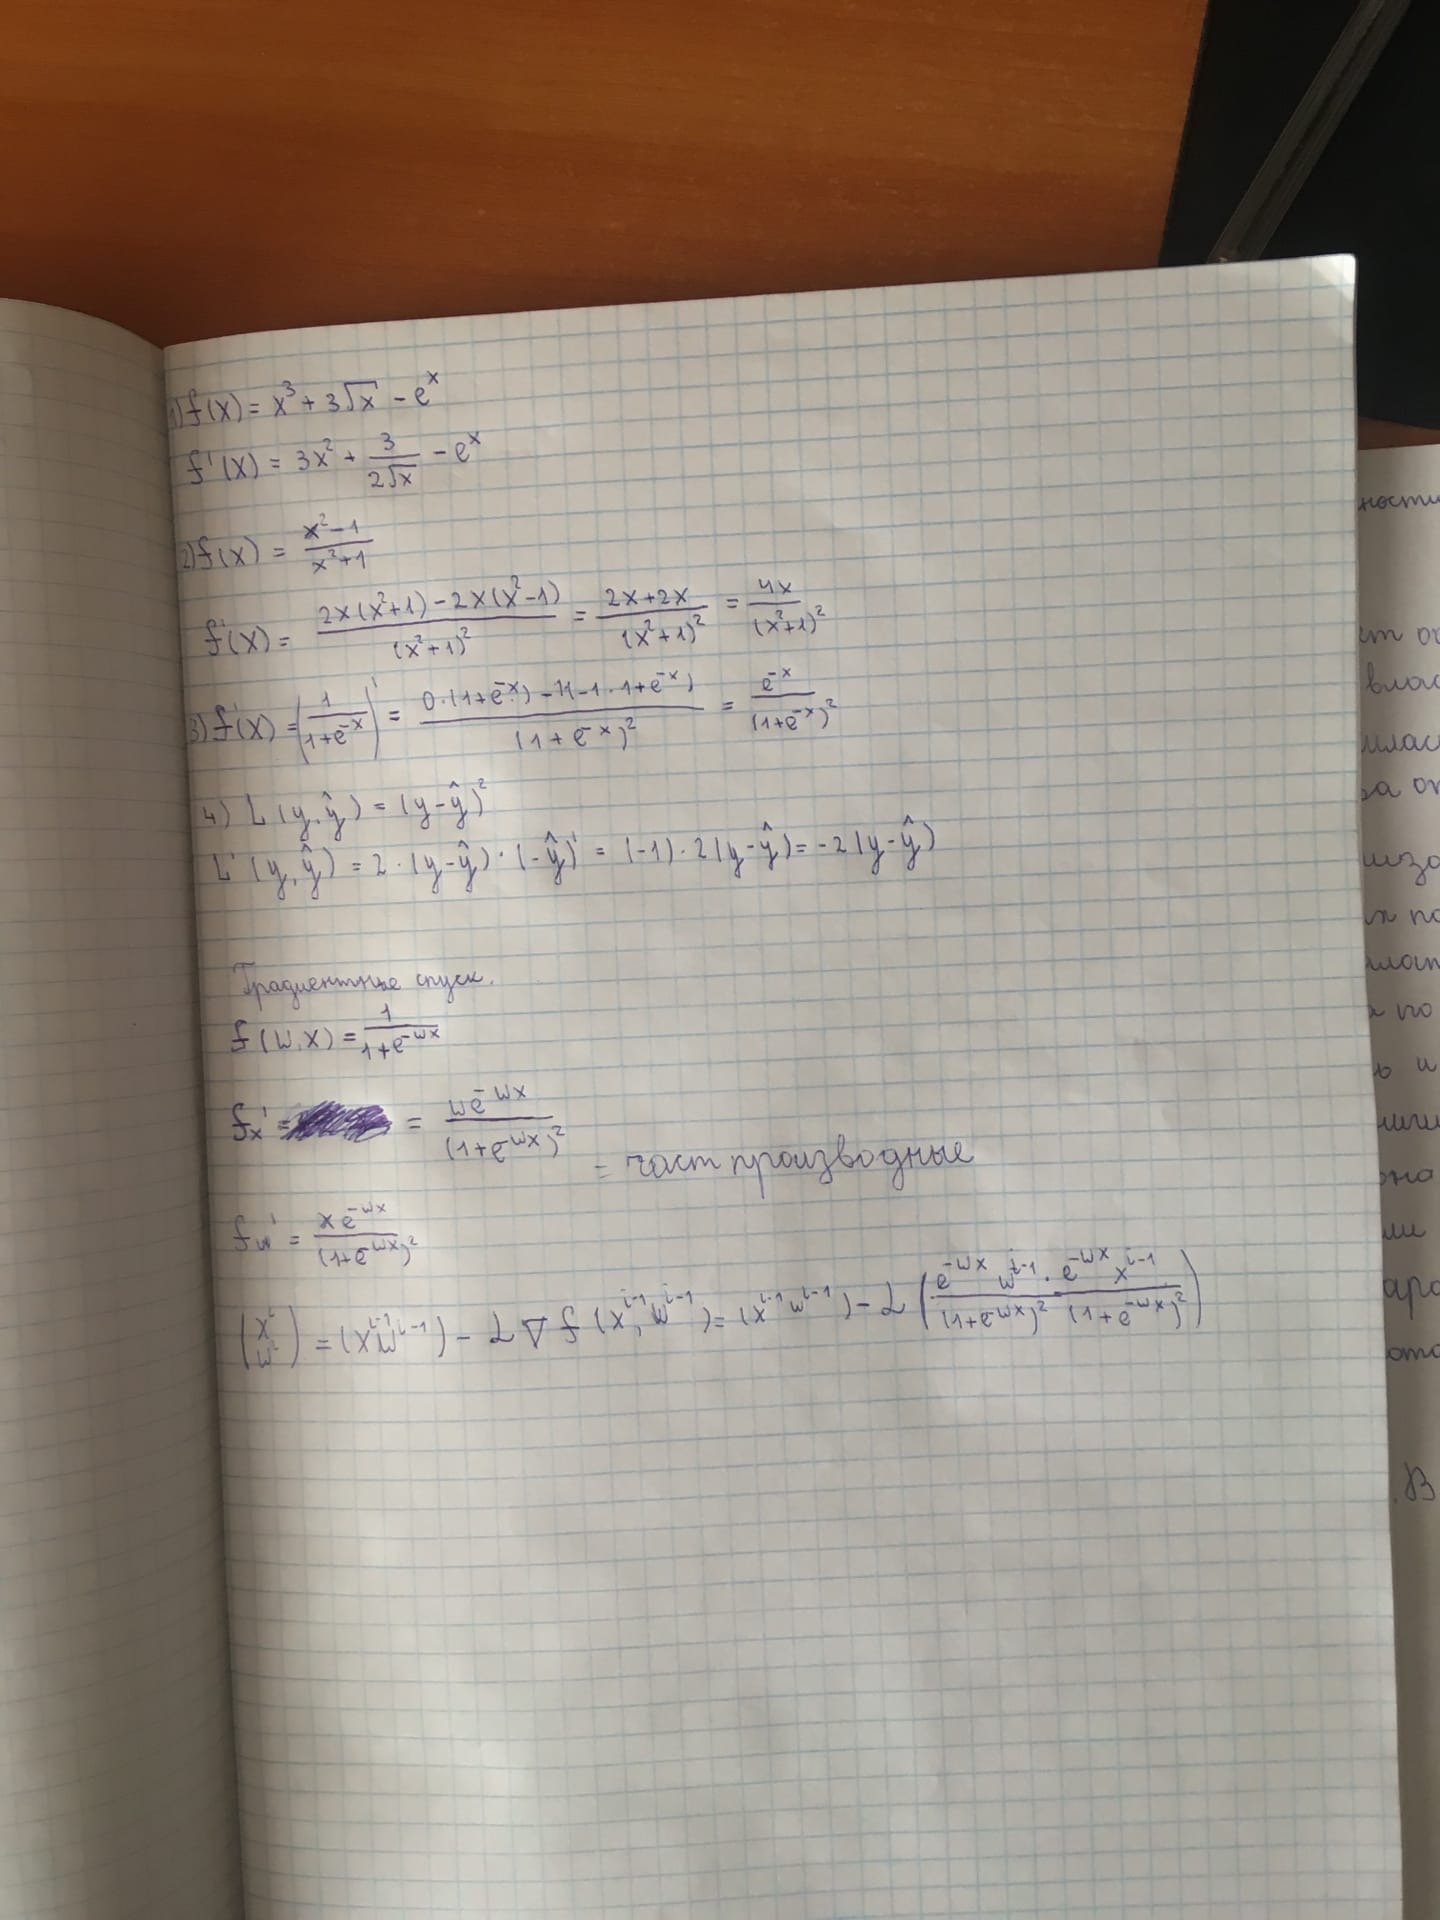 1) f(x) = x³ + 3√x - eˣ
f'(x) = 3x² + 3/(2√x) - eˣ
2) f(x) = (x²-1)/(x²+1)
f'(x) = (2x(x²+1) - 2x(x²-1))/(x²+1)² = (2x+2x)/(x²+1)² = 4x/(x²+1)²
3) f'(x) = (1/(1+e⁻ˣ))' = (0·(1+e⁻ˣ) - 1(-1·1+e⁻ˣ))/(1+e⁻ˣ)² = e⁻ˣ/(1+e⁻ˣ)²
4) L(y,ŷ) = (y-ŷ)²
L'(y,ŷ) = 2·(y-ŷ)·(-ŷ)' = (-1)·2(y-ŷ) = -2(y-ŷ)
Градиентные спуск.
f(w,x) = 1/(1+e^(-wx))
fx' = = we^(-wx)/(1+e^(-wx))²
= част производные
fw' = xe^(-wx)/(1+e^(-wx))²
(xⁱ wⁱ) = (xⁱ⁻¹ wⁱ⁻¹) - α ∇ f(xⁱ⁻¹, wⁱ⁻¹) = (xⁱ⁻¹ wⁱ⁻¹) - α (e^(-wx) wⁱ⁻¹/(1+e^(-wx))² · e^(-wx) xⁱ⁻¹/(1+e^(-wx))²)
ности
влас
ра
по
и
она
ли
аро
. В